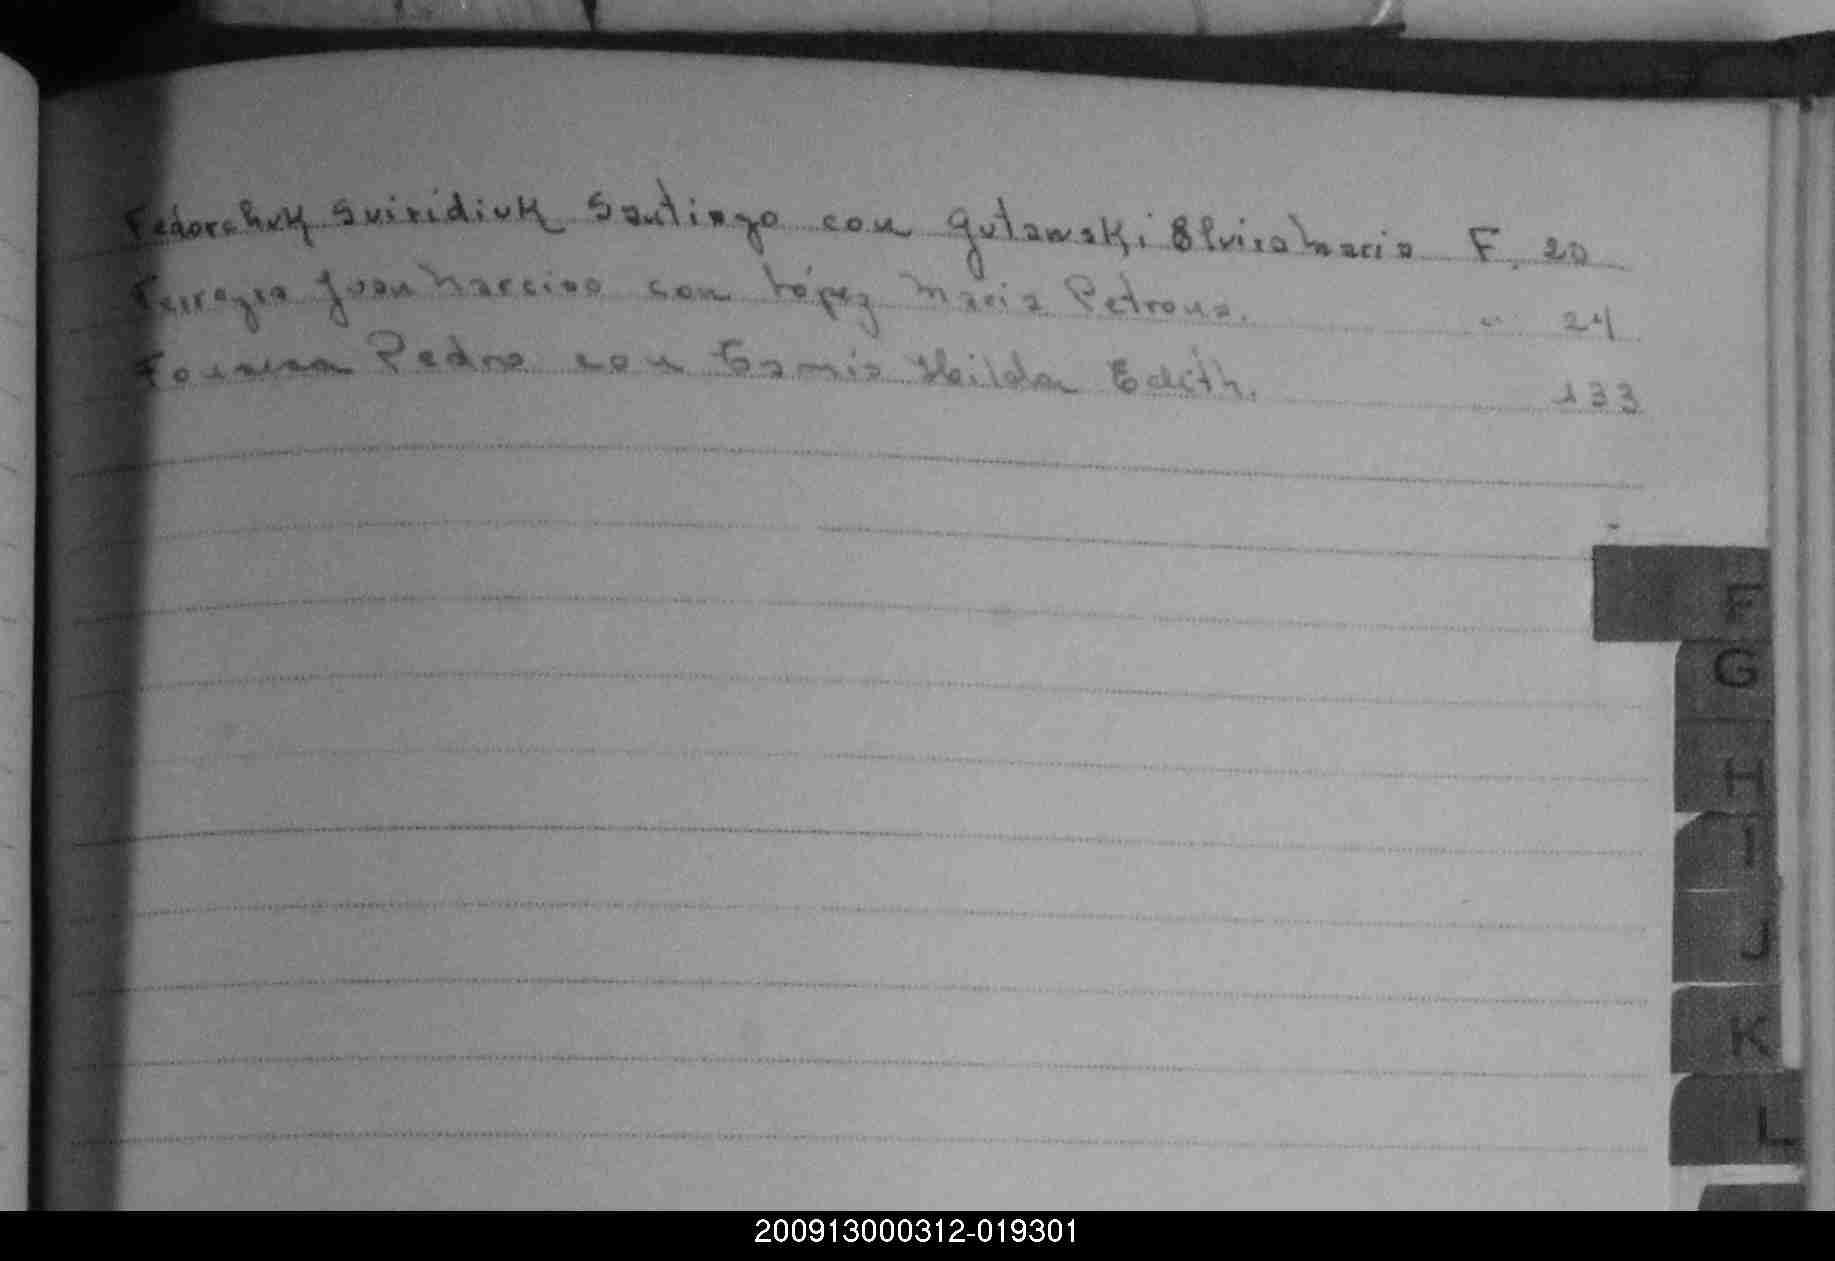 Fedorchuk Sviridiuk Santiago con Gutawski Elvira Maria F. 20
Ferreyra Juan Narciso con López Maria Petrona. " 24
Pedro con Hilda Edith. 133
F
G
H
I
J
K
L
200913000312-019301